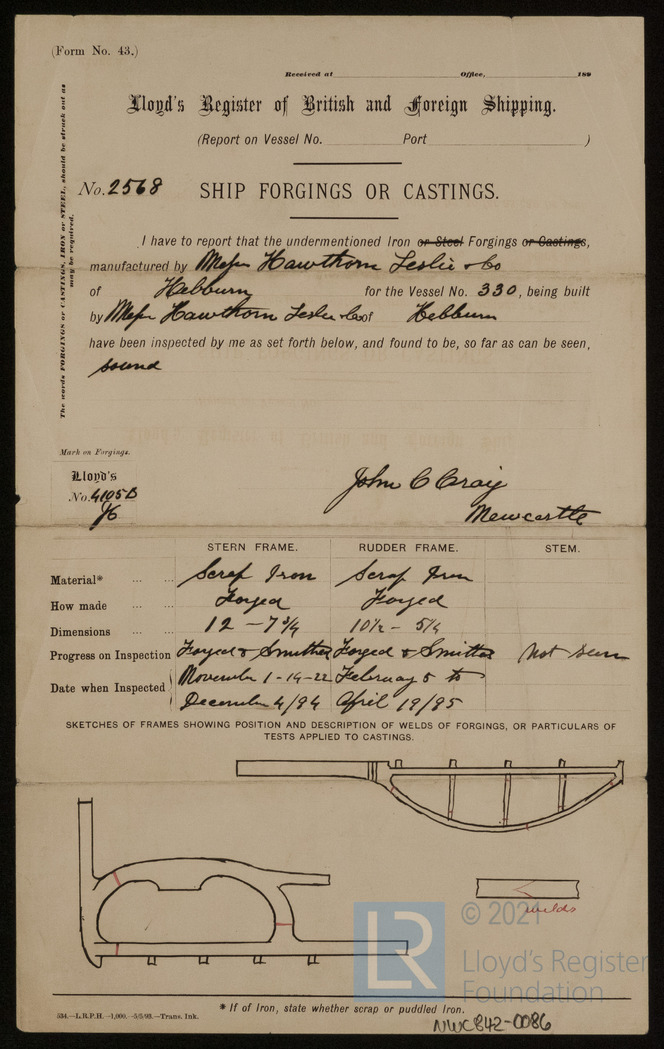 (Form No. 43.)
Received at Office, 189
Lloyd's Register of British and Foreign Shipping.
(Report on Vessel No. Port )
The words FORGINGS or CASTINGS, IRON or STEEL, should be struck out as may be required.
No. 2568 SHIP FORGINGS OR CASTINGS.
I have to report that the undermentioned Iron or Steel Forgings or Castings,
manufactured by Messrs Hawthorn Leslie & Co
of Hebburn for the Vessel No. 330, being built
by Messrs Hawthorn Leslie & Co of Hebburn
have been inspected by me as set forth below, and found to be, so far as can be seen,
sound
Mark on Forgings.
Lloyd's
No. 4105B
John C Craig
Newcastle
STERN FRAME. RUDDER FRAME. STEM.
Material* ... ... Scrap Iron Scrap Iron
How made ... ... Forged Forged
Dimensions ... ... 12 - 7 3/4 10 1/2 - 5 1/4
Progress on Inspection Forged & Smithed Forged & Smithed Not seen
Date when Inspected November 1-14-22 February 5 to
December 4/94 April 19/95
SKETCHES OF FRAMES SHOWING POSITION AND DESCRIPTION OF WELDS OF FORGINGS, OR PARTICULARS OF
TESTS APPLIED TO CASTINGS.
welds
LR
© 2021
Lloyd's Register
Foundation
* If of Iron, state whether scrap or puddled Iron.
534.—L.R.P.H.—1,000.—5/5/93.—Trans. Ink.
NWC842-0086